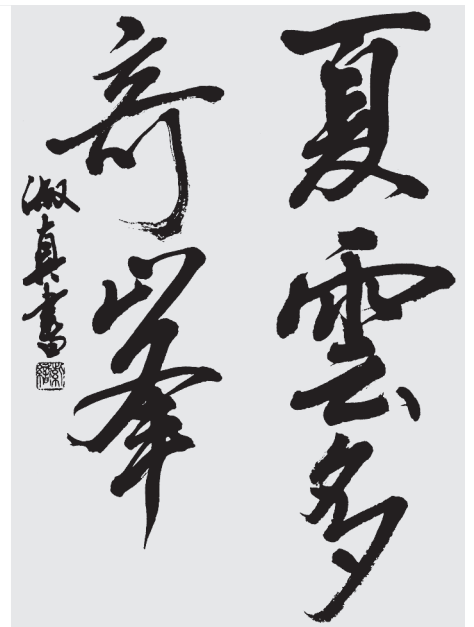 夏雲多
奇峯
淑真書